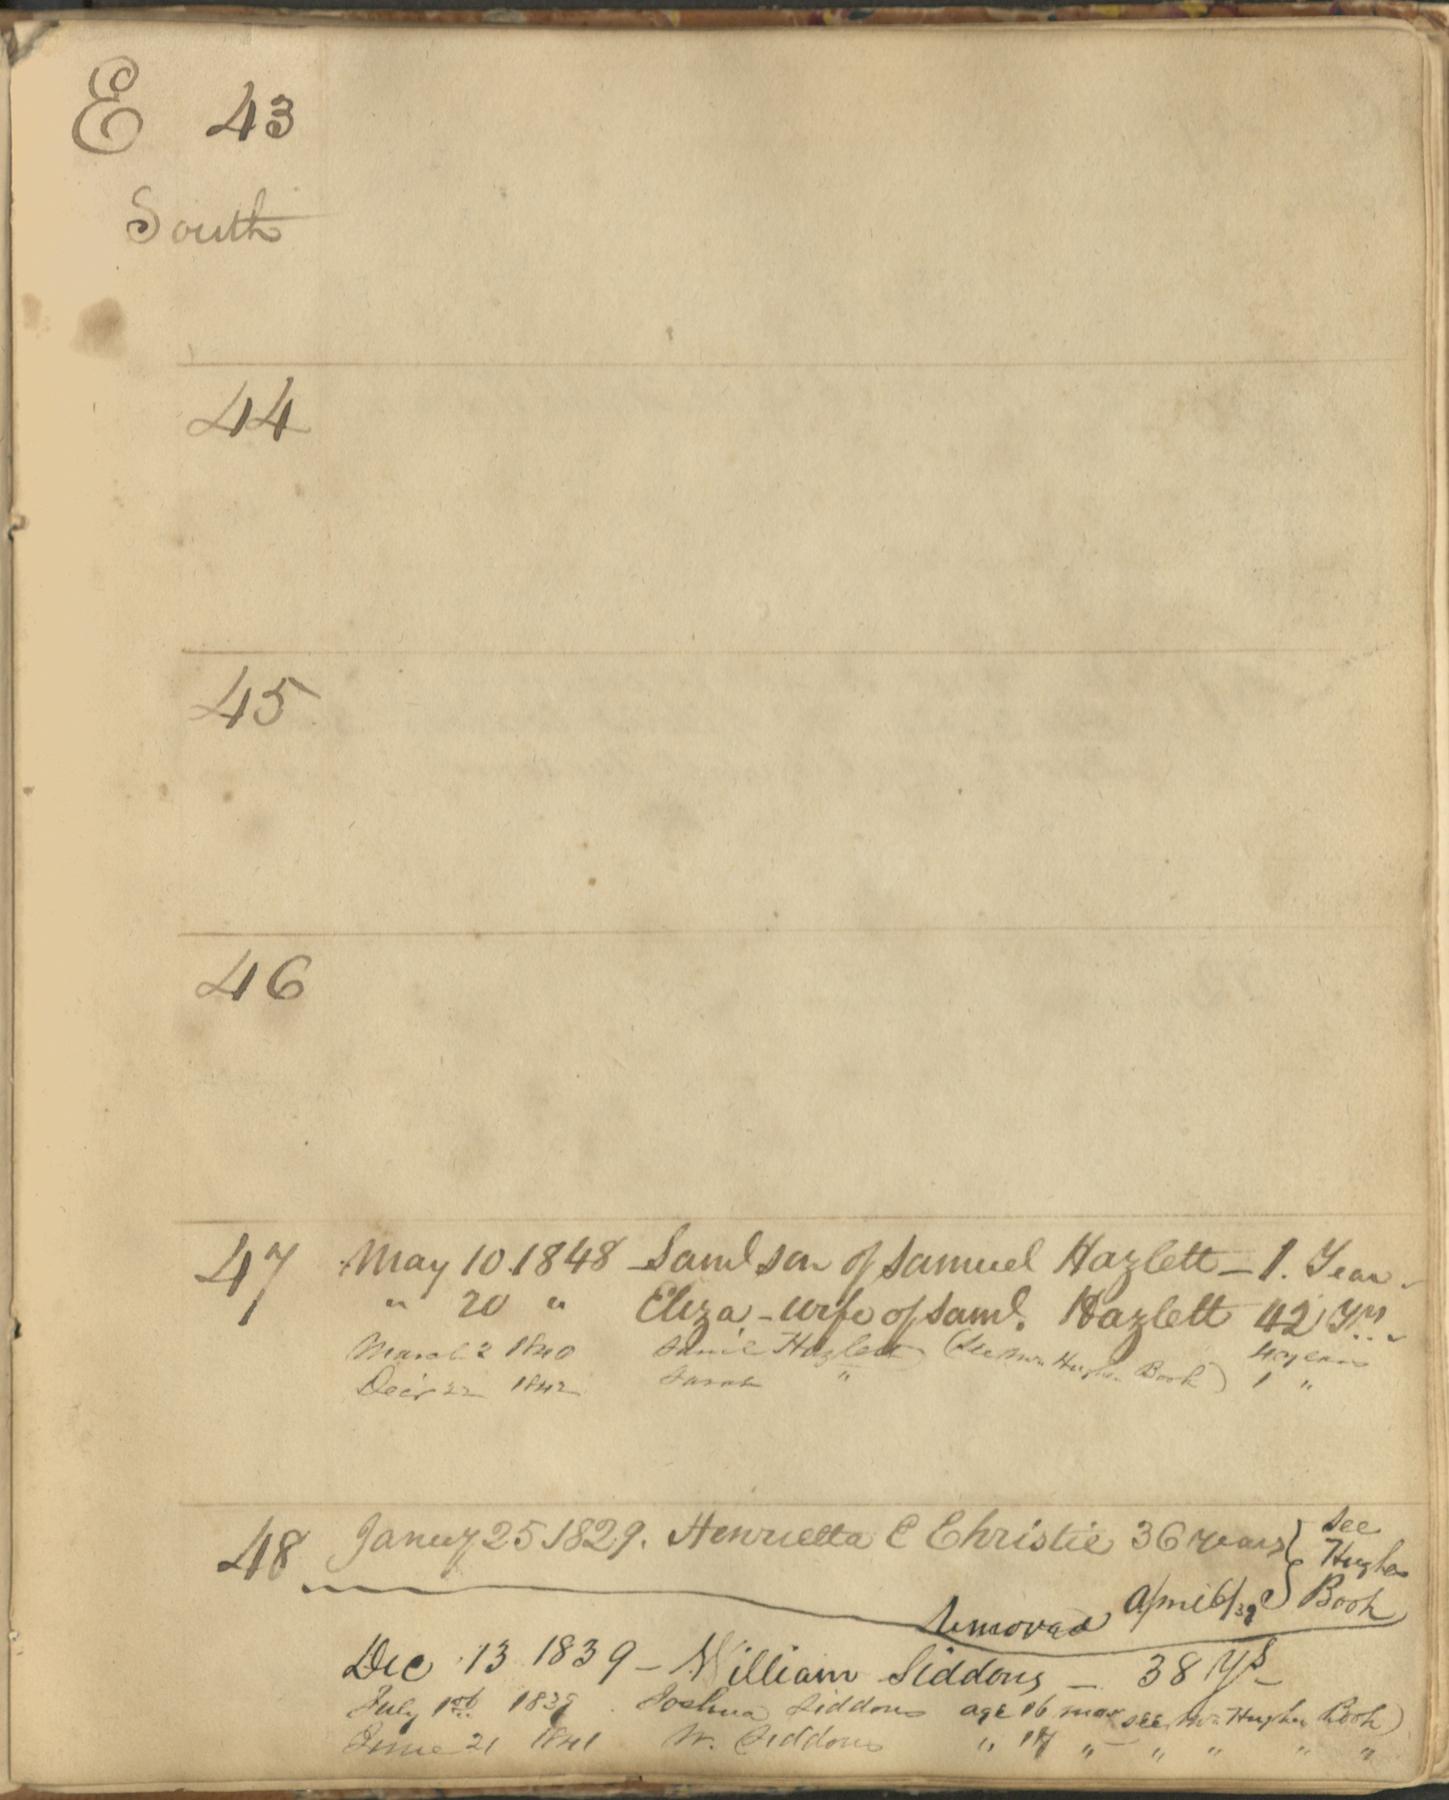 E 43
South
44
45
46
47 May 10. 1848 - Saml son of Samuel Hazlett - 1. Year -
" 20 " Eliza - wife of Saml. Hazlett 42 Yrs. -
March 2 1840 Saml Hazlett (See Mr. Hughes Book) 4 years
Decr 22 1842 Sarah " 1 "
48 Januy 25 1829. Henrietta C Christie 36 years } see Hughes Book
Removed April 6/39
Dec 13 1839 - William Siddons - 38 Ys -
July 1st 1839 Joshua Siddons age 16 mos see Mr. Hughes Book)
June 21 1841 W. Siddons " 17 " " " " "